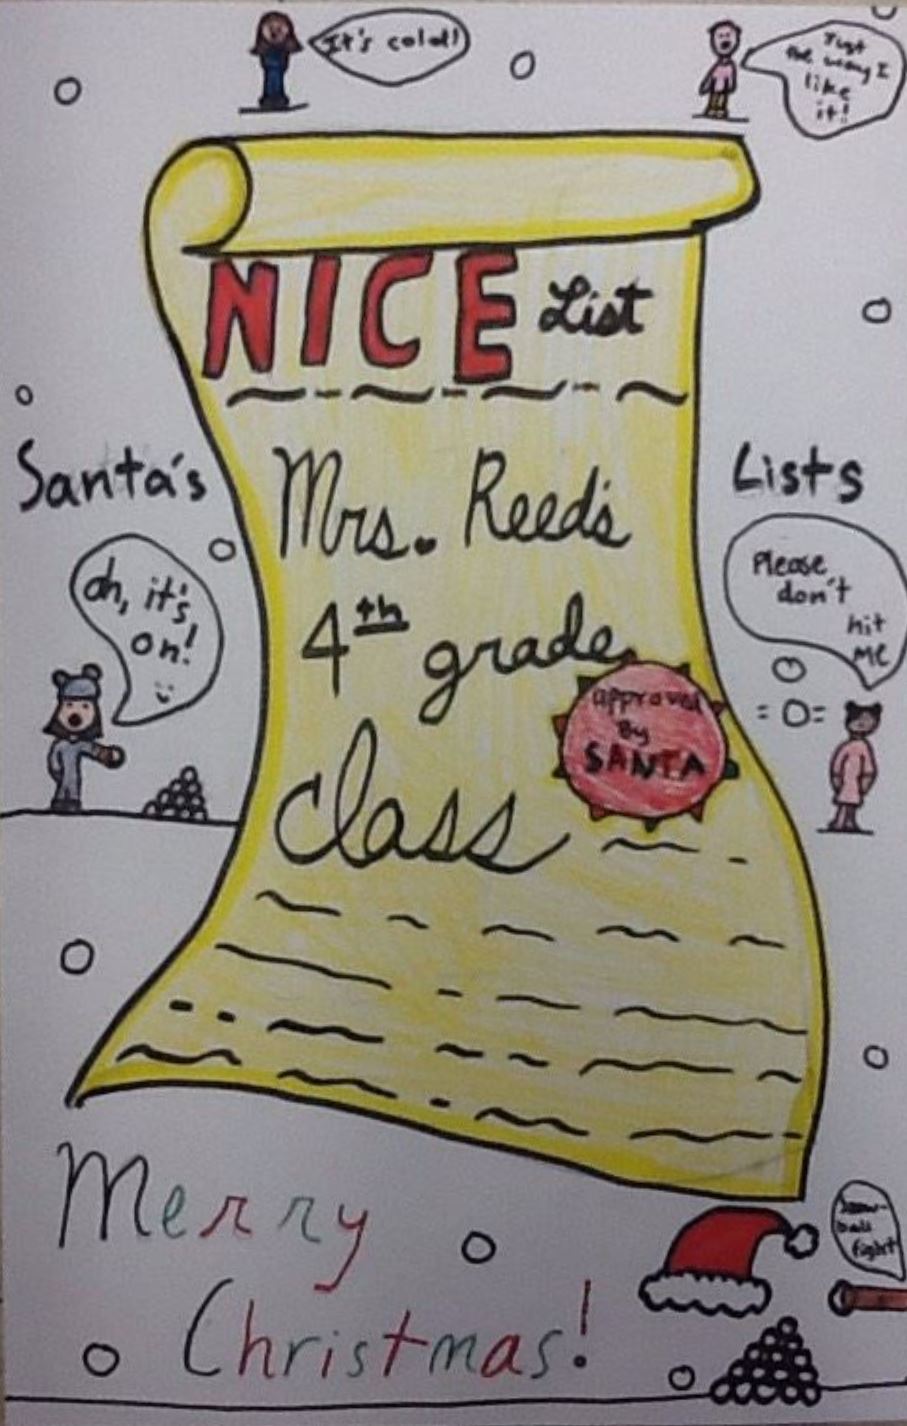 It's cold!
Just
the way I
like
it!
NICE List
Santa's
Lists
Mrs. Reed's
4th grade
class
approved
By
SANTA
oh, it's
on!
Please
don't
hit
me
Merry
Christmas!
Snow-
ball
fight